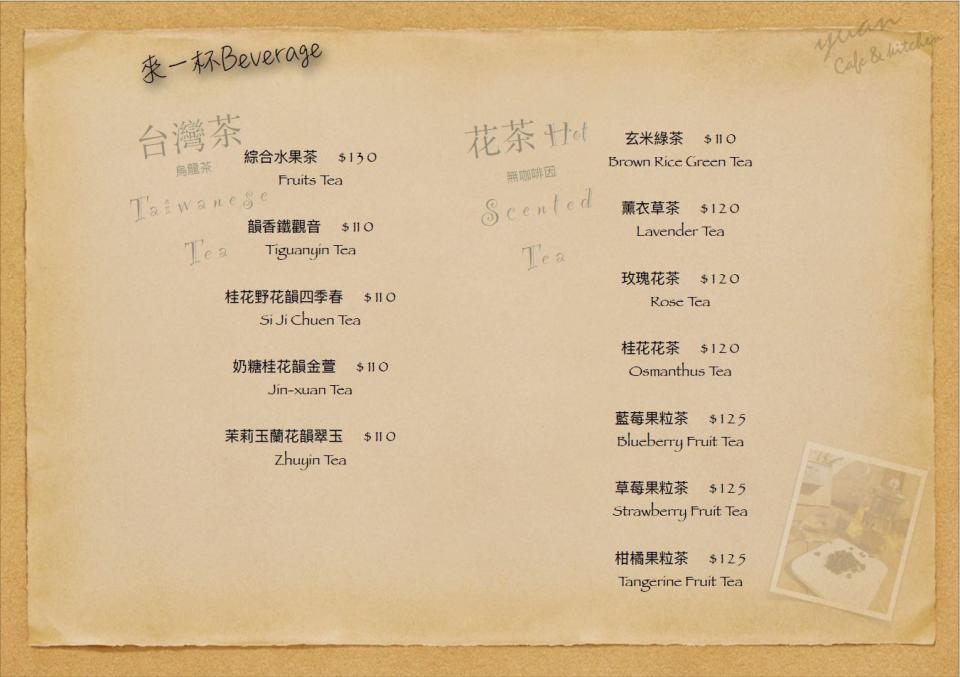 來一杯Beverage
yuan
Cafe & kitchen
台灣茶
烏龍茶
Taiwanese
Tea
綜合水果茶 $130
Fruits Tea
韻香鐵觀音 $110
Tiguanyin Tea
桂花野花韻四季春 $110
Si Ji Chuen Tea
奶糖桂花韻金萱 $110
Jin-xuan Tea
茉莉玉蘭花韻翠玉 $110
Zhuyin Tea
花茶 Hot
無咖啡因
Scented
Tea
玄米綠茶 $110
Brown Rice Green Tea
薰衣草茶 $120
Lavender Tea
玫瑰花茶 $120
Rose Tea
桂花花茶 $120
Osmanthus Tea
藍莓果粒茶 $125
Blueberry Fruit Tea
草莓果粒茶 $125
Strawberry Fruit Tea
柑橘果粒茶 $125
Tangerine Fruit Tea